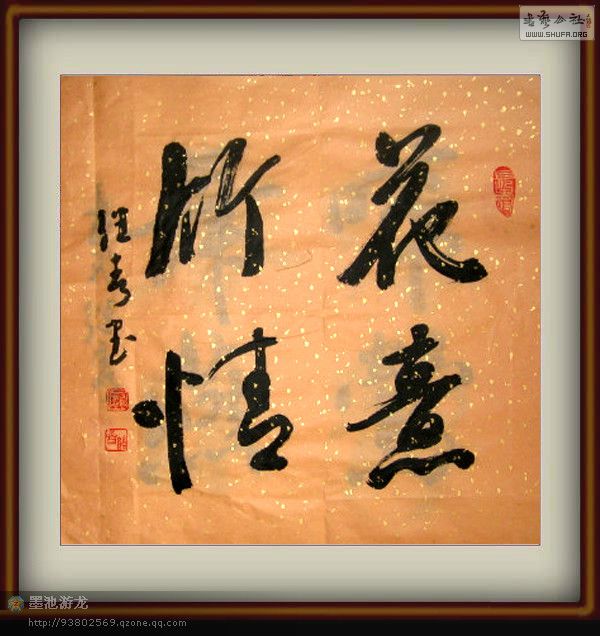 花意
竹情
书
書藝公社
WWW.SHUFA.ORG
墨池游龙
http://93802569.qzone.qq.com